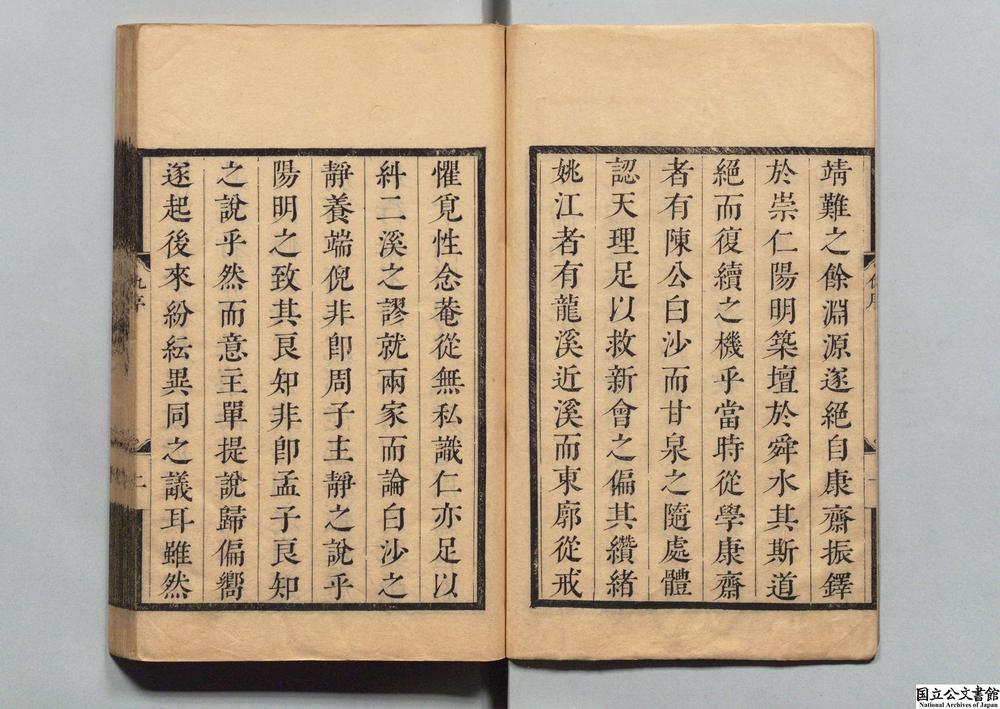 靖難之餘淵源遂絕自康齋振鐸
於崇仁陽明築壇於舜水其斯道
絕而復續之機乎當時從學康齋
者有陳公白沙而甘泉之隨處體
認天理足以救新會之偏其纘緒
姚江者有龍溪近溪而東廓從戒
懼覓性念菴從無私識仁亦足以
糾二溪之謬就兩家而論白沙之
靜養端倪非卽周子主靜之說乎
陽明之致其良知非卽孟子良知
之說乎然而意主單提說歸偏嚮
遂起後來紛紜異同之議耳雖然
仇序
二
国立公文書館
National Archives of Japan